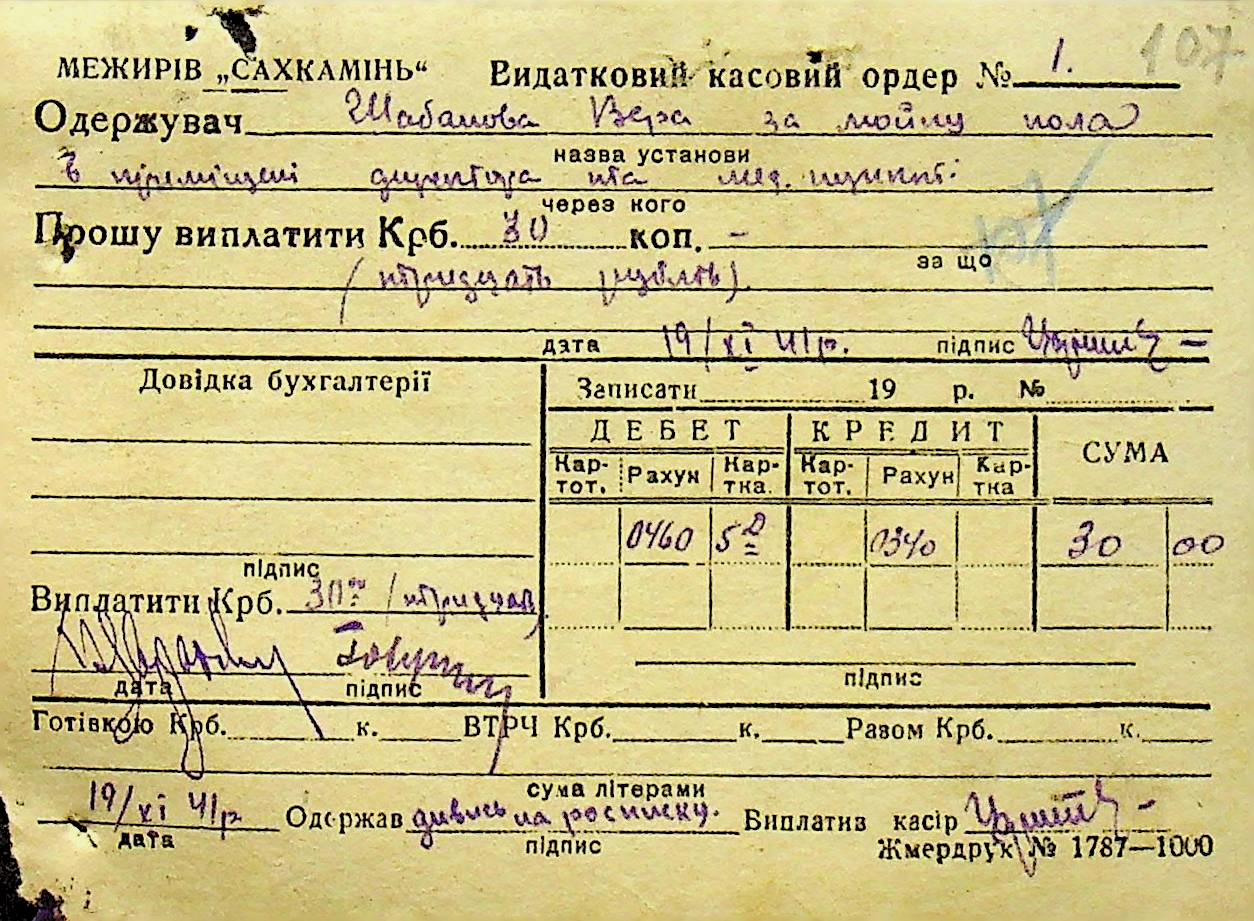 107
МЕЖИРІВ „САХКАМІНЬ“ Видатковий касовий ордер № 1.
Одержувач Шабанова Вера за мойку пола
назва установи
в приміщені директора та мед. пункті
через кого
Прошу виплатити Крб. 30 коп. –
за що
107
(тридцать рублів)
дата 19/XI 41р. підпис
Довідка бухгалтерії
Записати 19 р. №
ДЕБЕТ КРЕДИТ СУМА
Кар-тот. Рахун Кар-тка. Кар-тот. Рахун Кар-тка
0460 5 0340 30 00
підпис
Виплатити Крб. 30 (тридцать)
дата підпис
підпис
Готівкою Крб. к. ВТРЧ Крб. к. Разом Крб. к.
сума літерами
19/XI 41р Одержав дивись на росписку. Виплатив касір
дата підпис
Жмердрук № 1787—1000